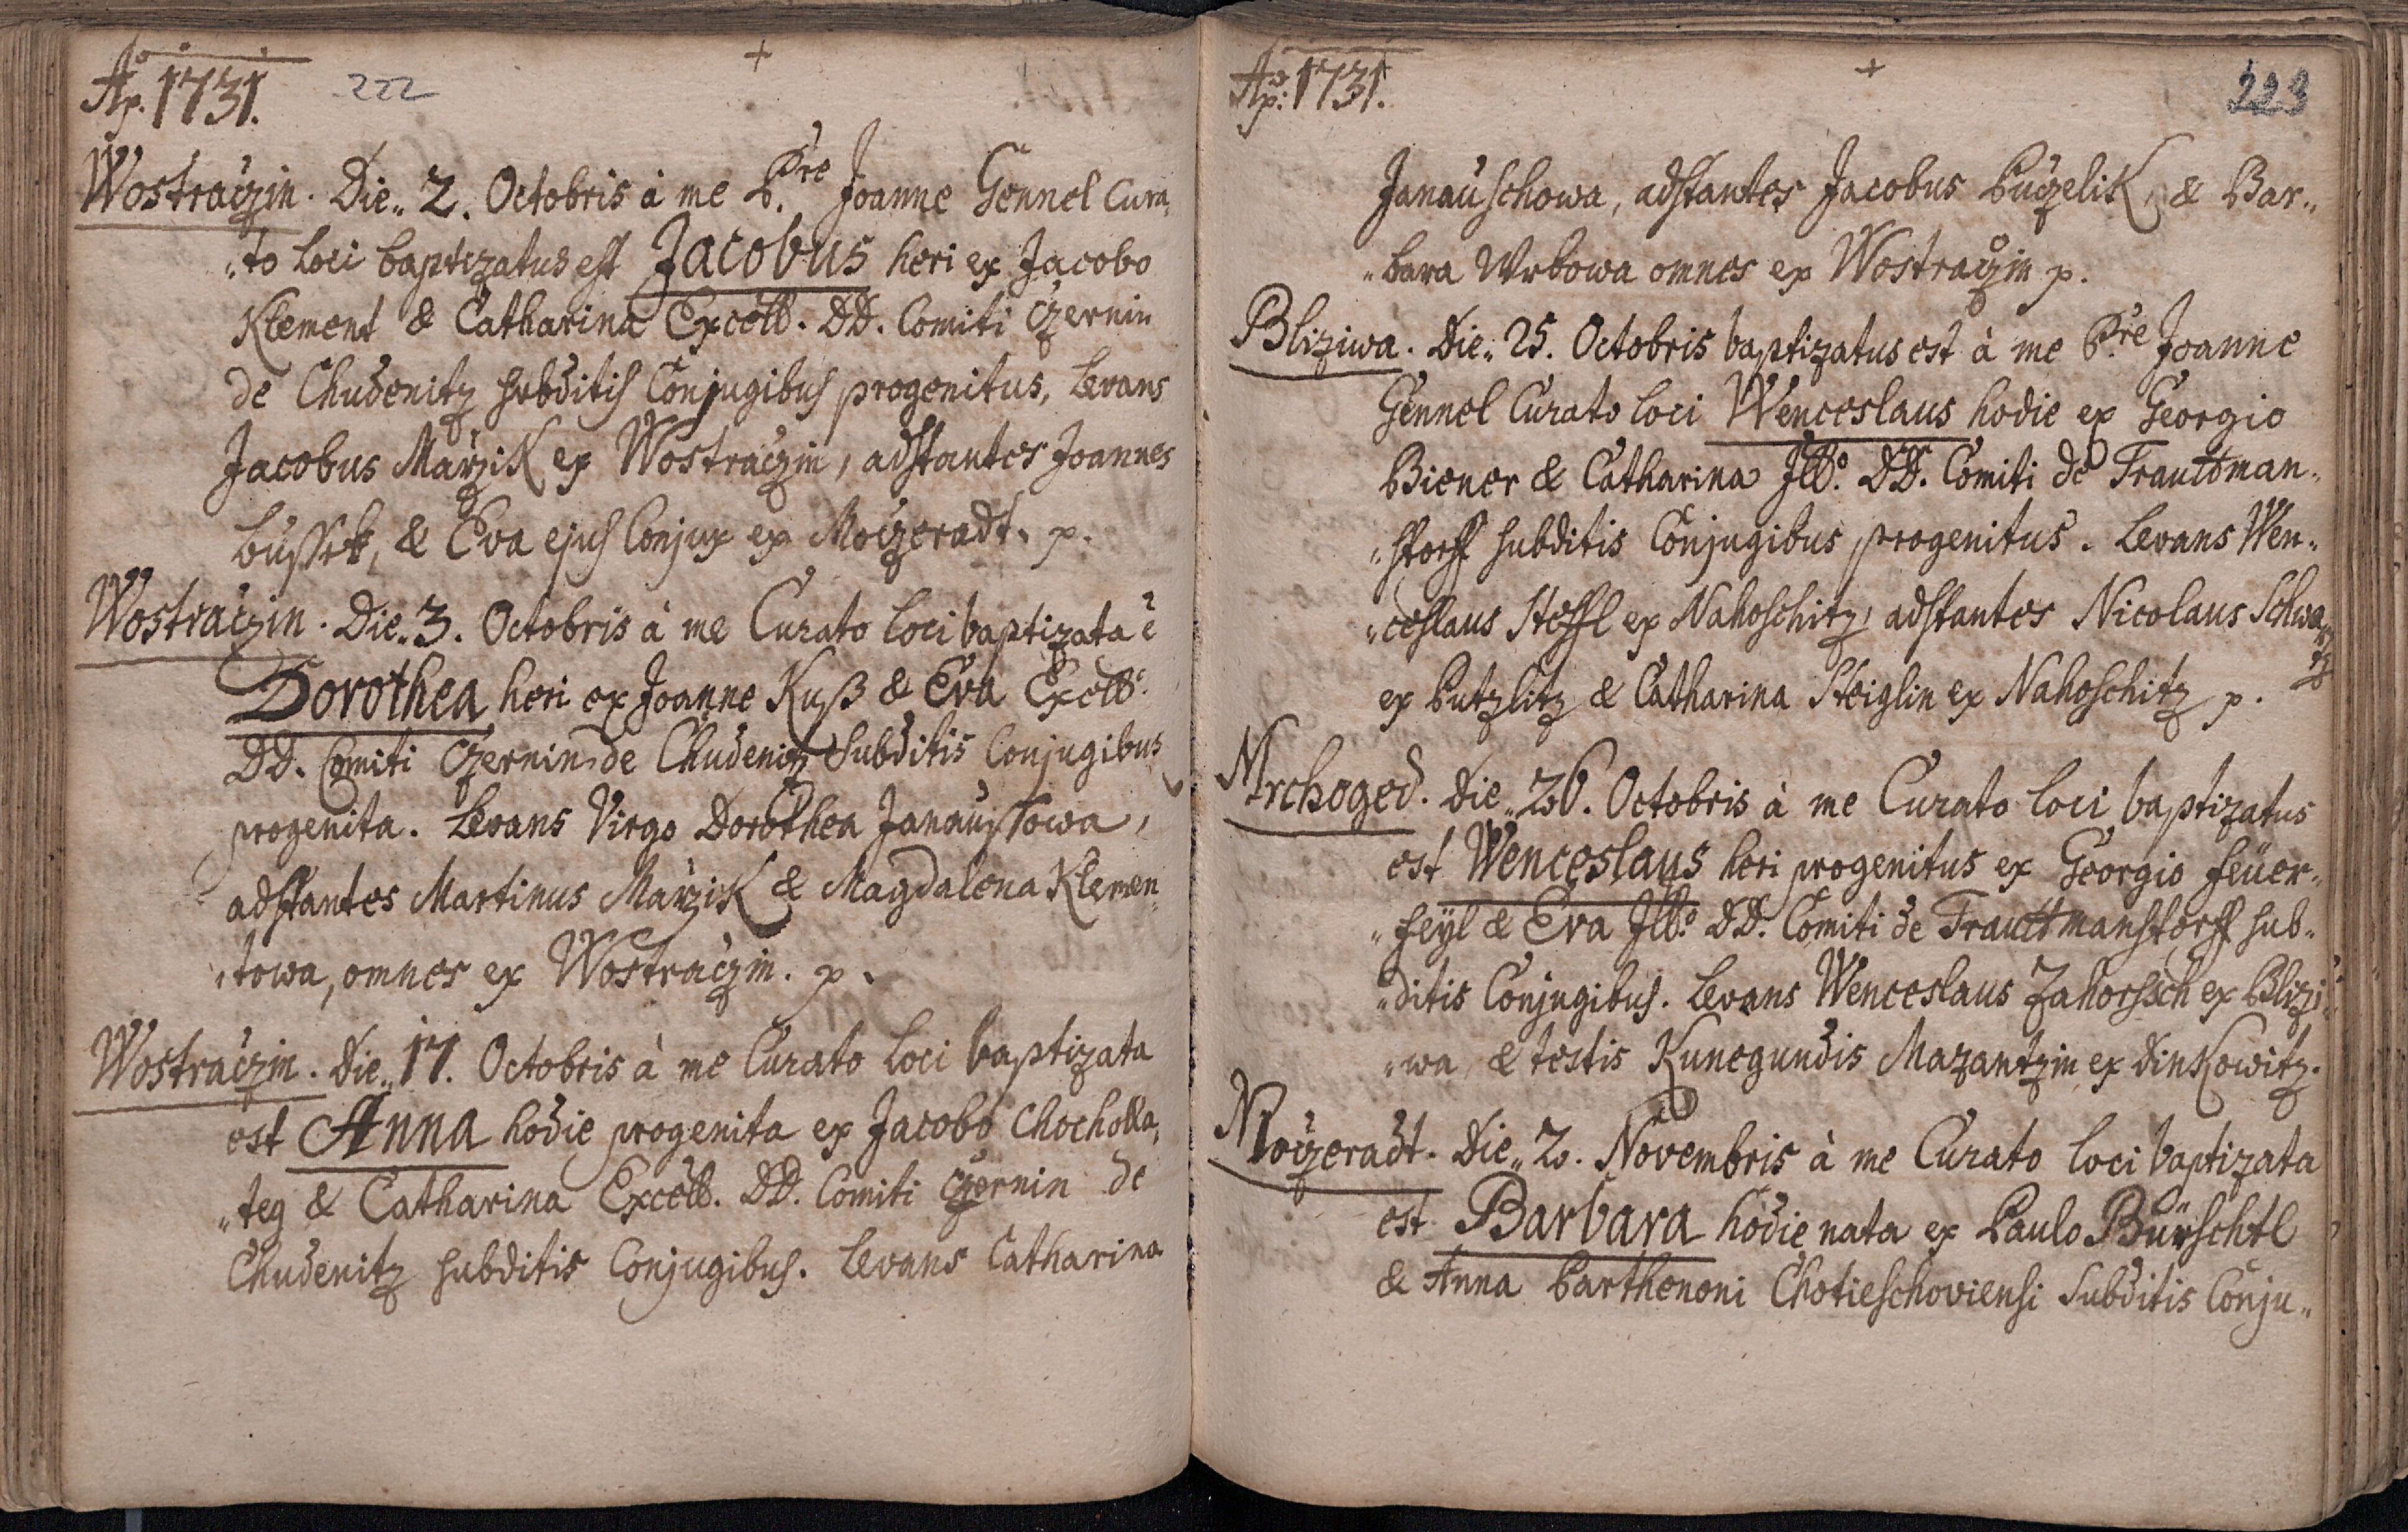 Aõ. 1731. 222
Wostraczin. Die„ 2. Octobris à me P.re Joanne Gennel Cura„
„to loci baptizatus est Jacobus heri ex Jacobo
Klement & Catharina Excell. DD. Comiti Czernin
de Chudenitz subditis Conjugibus progenitus, Levans
Jacobus Marzik ex Wostraczin, adstantes Joannes
& Eva ejus Conjux ex Moczeradt. p.
Wostraczin. Die„ 3. Octobris à me Curato loci baptizata ẽ
Dorothea heri ex Joanne Kuß & Eva Excell.
DD. Comiti Czernin de Chudenitz Subditis Conjugibus
progenita. Levans Virgo Dorothea Janaussowa,
adstantes Martinus Marzik & Magdalena Klemen„
„towa, omnes ex Wostraczin. p.
Wostraczin. Die„ 17. Octobris à me Curato loci baptizata
est Anna hodie progenita ex Jacobo Chocholla„
„teg & Catharina Excell. DD. Comiti Czernin de
Chudenitz subditis Conjugibus. Levans Catharina
Aõ: 1731. 223
Janauschowa, adstantes Jacobus Puczelik, & Bar„
„bara Wrbowa omnes ex Wostraczin p.
Bliziwa. Die„ 25. Octobris baptizatus est à me P.re Joanne
Gennel Curato loci Wenceslaus hodie ex Georgio
Biener & Catharina Ill.o DD. Comiti de Trauttman„
„storff subditis Conjugibus progenitus. Levans Wen„
„ceslaus Stessl ex Nahoschitz, adstantes Nicolaus Schwartz
ex Putzlitz & Catharina Steiglin ex Nahoschitz p.
Mrchoged. Die„ 26. Octobris à me Curato loci baptizatus
est Wenceslaus heri progenitus ex Georgio Feüer„
„feÿl & Eva Ill.o DD. Comiti de Trauttmanstorff sub„
„ditis Conjugibus. Levans Wenceslaus Zahorsch ex Blizi„
„wa, & testis Kunegundis Mazantzin ex Dinkowitz.
Moczeradt. Die„ 2. Novembris à me Curato loci baptizata
est Barbara hodie nata ex Paulo Bürschtl
& Anna Parthenoni Chotieschoviensi Subditis Conju„